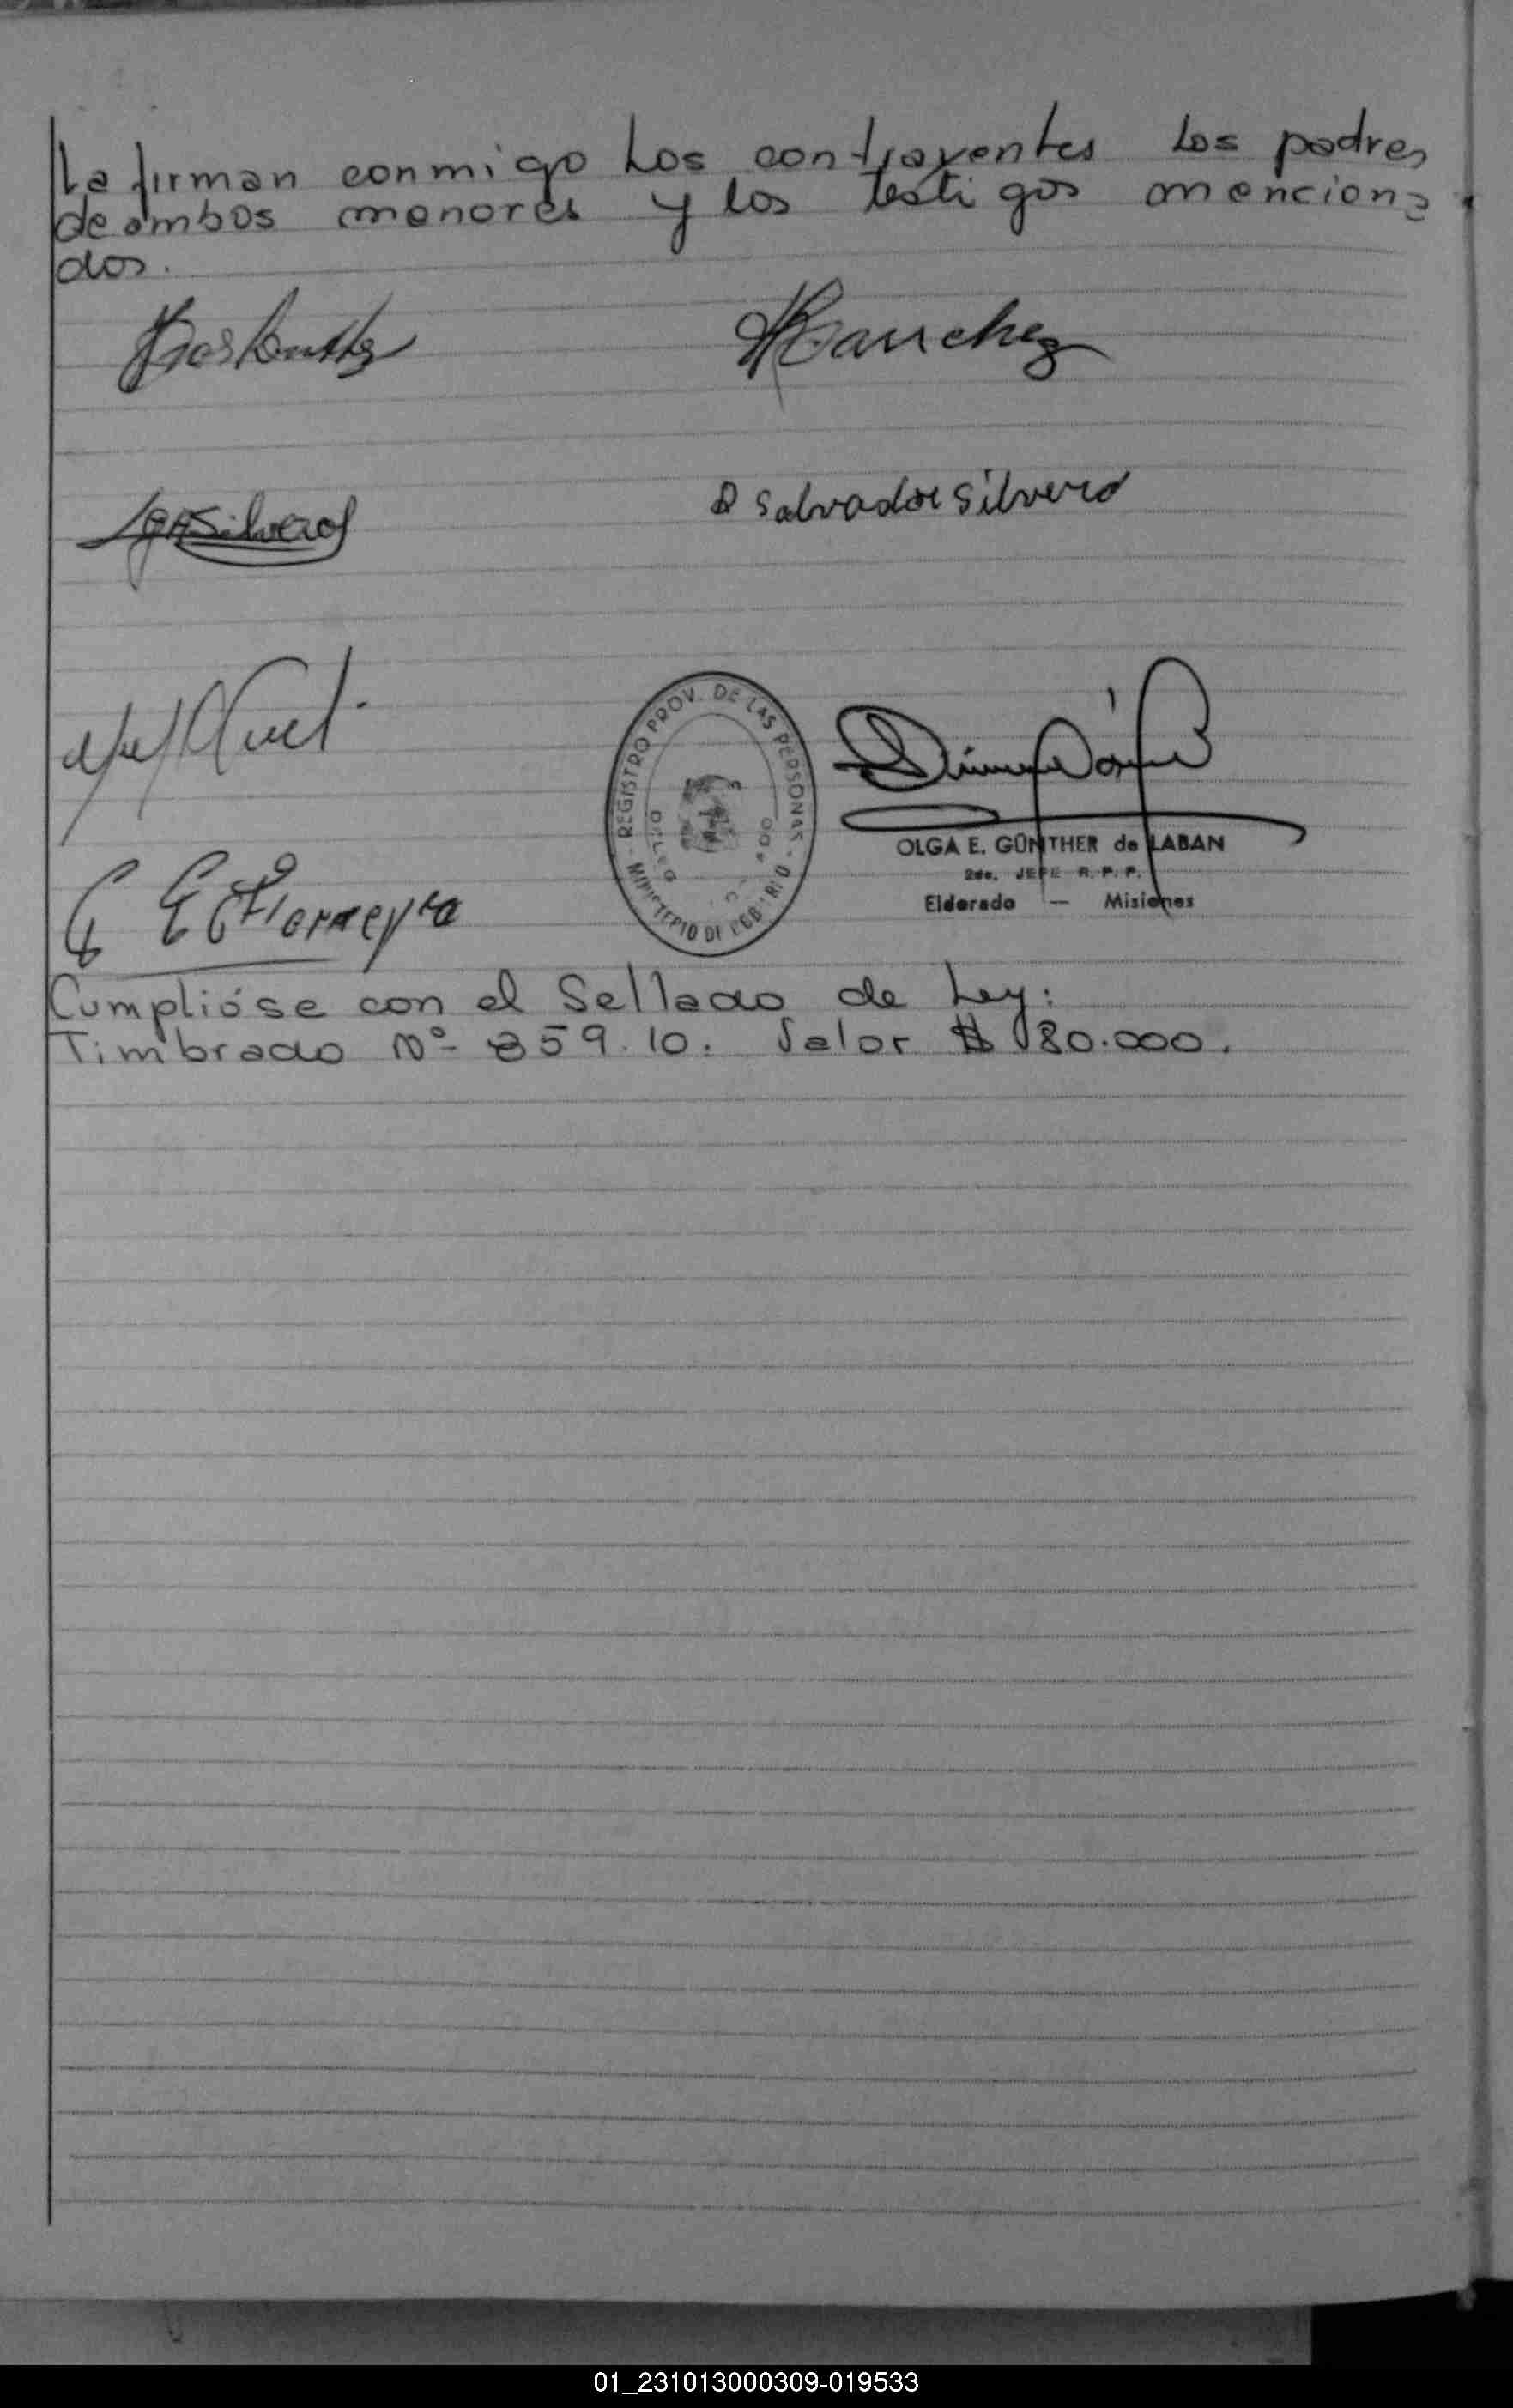 La firman conmigo Los contrayentes Los padres
de ambos menores y los testigos menciona
dos.
Sanchez
Silvero
Salvador Silvero
REGISTRO PROV. DE LAS PERSONAS - MINISTERIO DE GOB
OLGA E. GÜNTHER de LABAN
2do. JEFE R. P. P.
Eldorado — Misiones
Cumplióse con el Sellado de Ley:
Timbrado Nº 859.10. Valor $ 80.000.
01_231013000309-019533